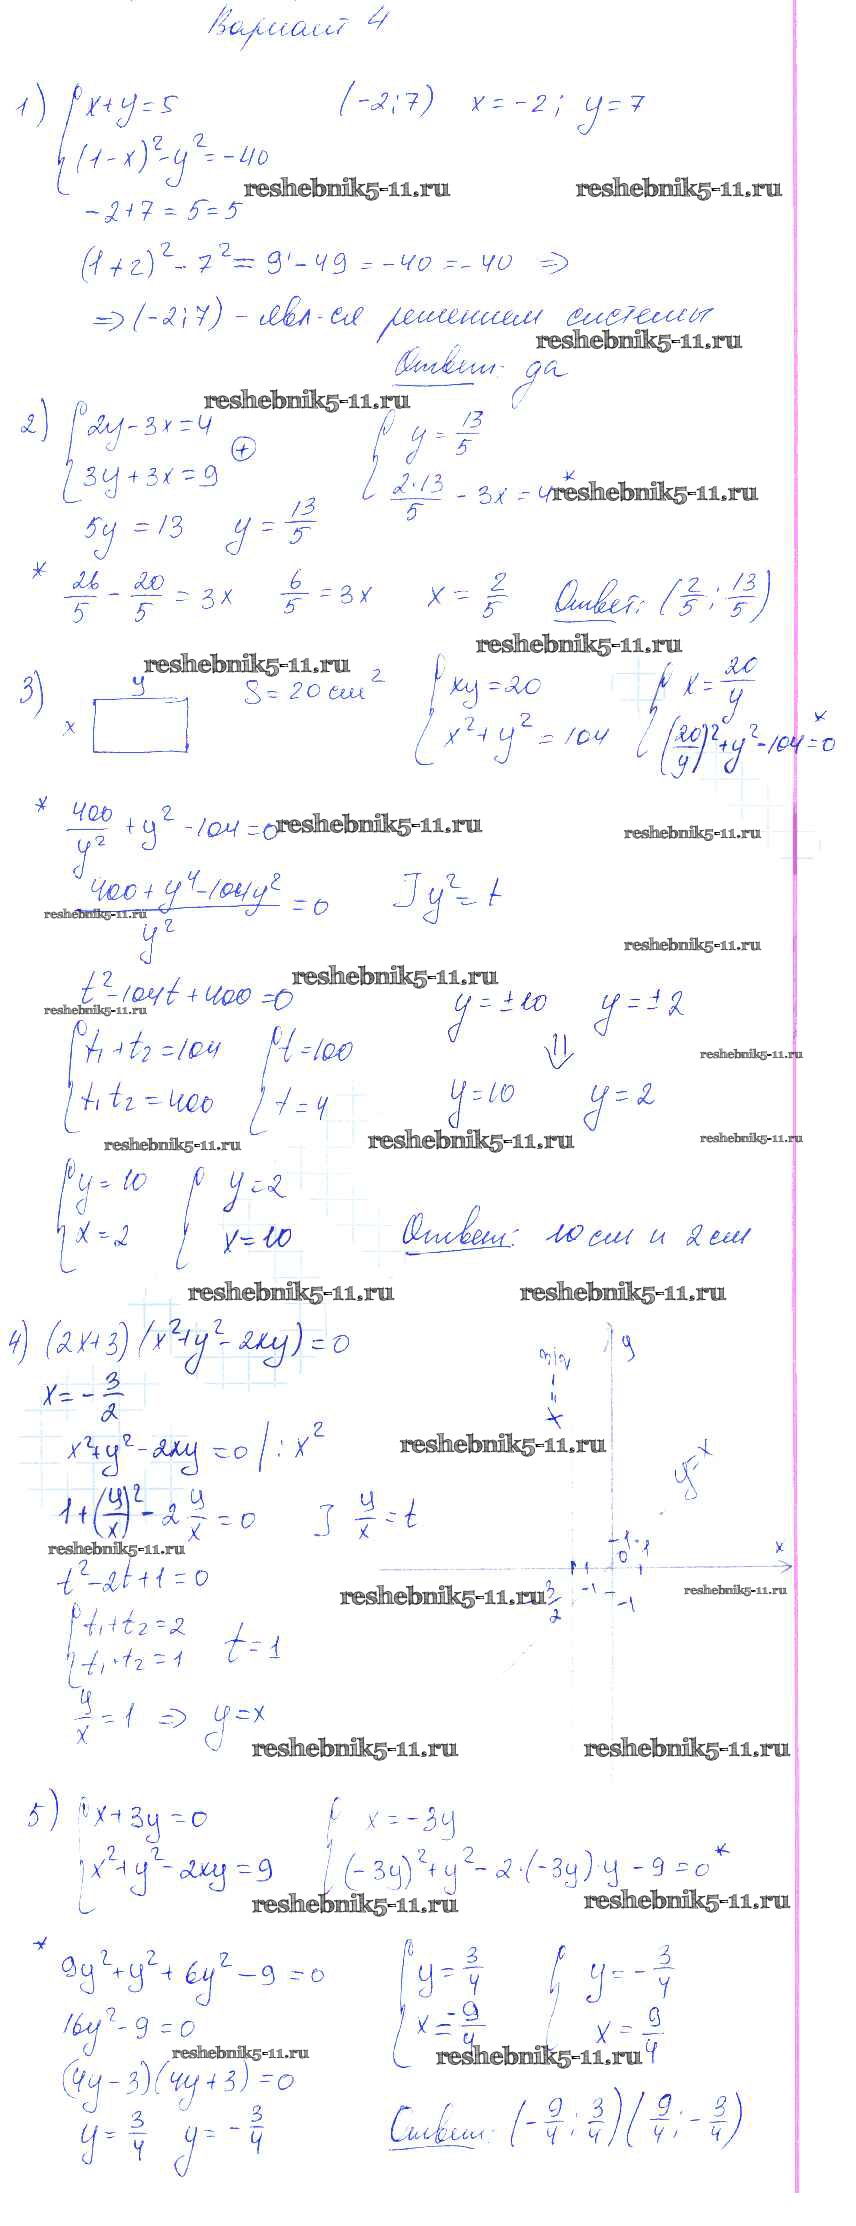 Вариант 4
1) { x+y=5   (-2;7)   x=-2; y=7
(1-x)²-y²=-40
reshebnik5-11.ru   reshebnik5-11.ru
-2+7=5=5
(1+2)²-7²=9-49=-40=-40 ⇒
⇒(-2;7) - явл-ся решением системы
reshebnik5-11.ru
Ответ: да
reshebnik5-11.ru
2) { 2y-3x=4   { y=13/5
3y+3x=9 ⊕   2·13/5 - 3x=4 *
reshebnik5-11.ru
5y=13   y=13/5
* 26/5 - 20/5 = 3x   6/5=3x   x=2/5   Ответ: (2/5; 13/5)
reshebnik5-11.ru
reshebnik5-11.ru
3) y   S=20 см²   { xy=20   { x=20/y
x   x²+y²=104   (20/y)²+y²-104=0 *
* 400/y² + y² - 104=0
reshebnik5-11.ru   reshebnik5-11.ru
(400+y⁴-104y²)/y² = 0   ] y²=t
reshebnik5-11.ru
reshebnik5-11.ru
reshebnik5-11.ru
t²-104t+400=0   y=±10   y=±2
reshebnik5-11.ru
{ t₁+t₂=104   { t=100   ⇓
reshebnik5-11.ru
t₁t₂=400   t=4   y=10   y=2
reshebnik5-11.ru   reshebnik5-11.ru   reshebnik5-11.ru
{ y=10   { y=2
x=2   x=10   Ответ: 10 см и 2 см
reshebnik5-11.ru   reshebnik5-11.ru
4) (2x+3)(x²+y²-2xy)=0   y
x=-3/2   x=-3/2
x²+y²-2xy=0 |:x²
reshebnik5-11.ru
y=x
1+(y/x)²-2 y/x=0   ] y/x=t
reshebnik5-11.ru
1   1   0   x
t²-2t+1=0   -3/2   -1   -1
reshebnik5-11.ru   reshebnik5-11.ru
{ t₁+t₂=2
t₁·t₂=1   t=1
y/x=1 ⇒ y=x
reshebnik5-11.ru   reshebnik5-11.ru
5) { x+3y=0   { x=-3y
x²+y²-2xy=9   (-3y)²+y²-2·(-3y)·y-9=0 *
reshebnik5-11.ru   reshebnik5-11.ru
* 9y²+y²+6y²-9=0   { y=3/4   { y=-3/4
16y²-9=0   x=-9/4   x=9/4
reshebnik5-11.ru   reshebnik5-11.ru
(4y-3)(4y+3)=0
y=3/4   y=-3/4   Ответ: (-9/4; 3/4) (9/4; -3/4)